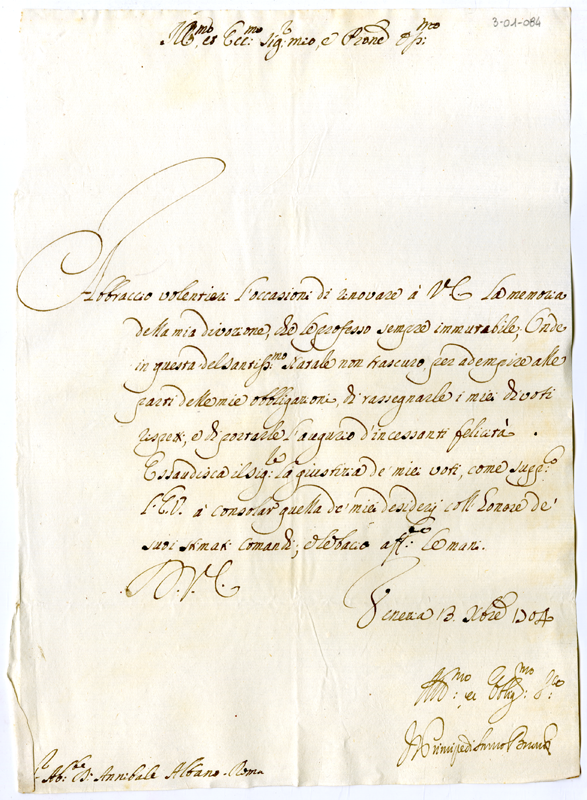 3-01-084
Ill.mo et Ecc.mo Sig.r mio, e Prone
Abbraccio volentieri l'occasioni di rinovare à V.E. la memoria
della mia divozione, che le professo sempre immutabile; Onde
in questa del Santiss.mo Natale non trascuro, per adempire alle
parti delle mie obbligazioni, di rassegnarle i miei divoti
rispetti, e di portarle l'augurio d'incessanti felicità.
Essaudisca il Sig.re la giustizia de' miei voti, come supp.co
l'E.V. à consolar quella de' miei desiderj coll'honore de'
suoi stimati comandi; e le bacio aff.te le mani.
D.V.E.
13. Xbre 1704
Div.mo et Obblig.mo
Il Principe di
Ab.te D. Annibale Albano - Roma